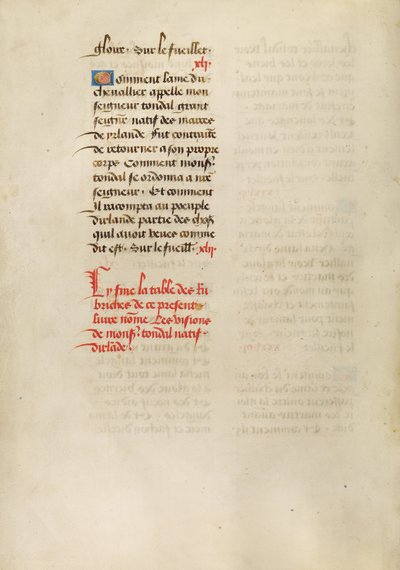 gloire. Sur le fueillet.
xli.
Comment lame du
chevallier appelle mon
seigneur tondal grant
seignr natif des marces
de yrlande fut contrainte
de retourner a son propre
corps Comment monsr
tondal se ordonna a nre
seigneur. Et comment
Il racompta au poeuple
dirlande partie des choses
quil avoit veues comme
dit est. Sur le fueillt. xlii.
Cy fine la table des Ru
briches de ce present
livre nomme Les visions
de monsr tondal natif
dirlande